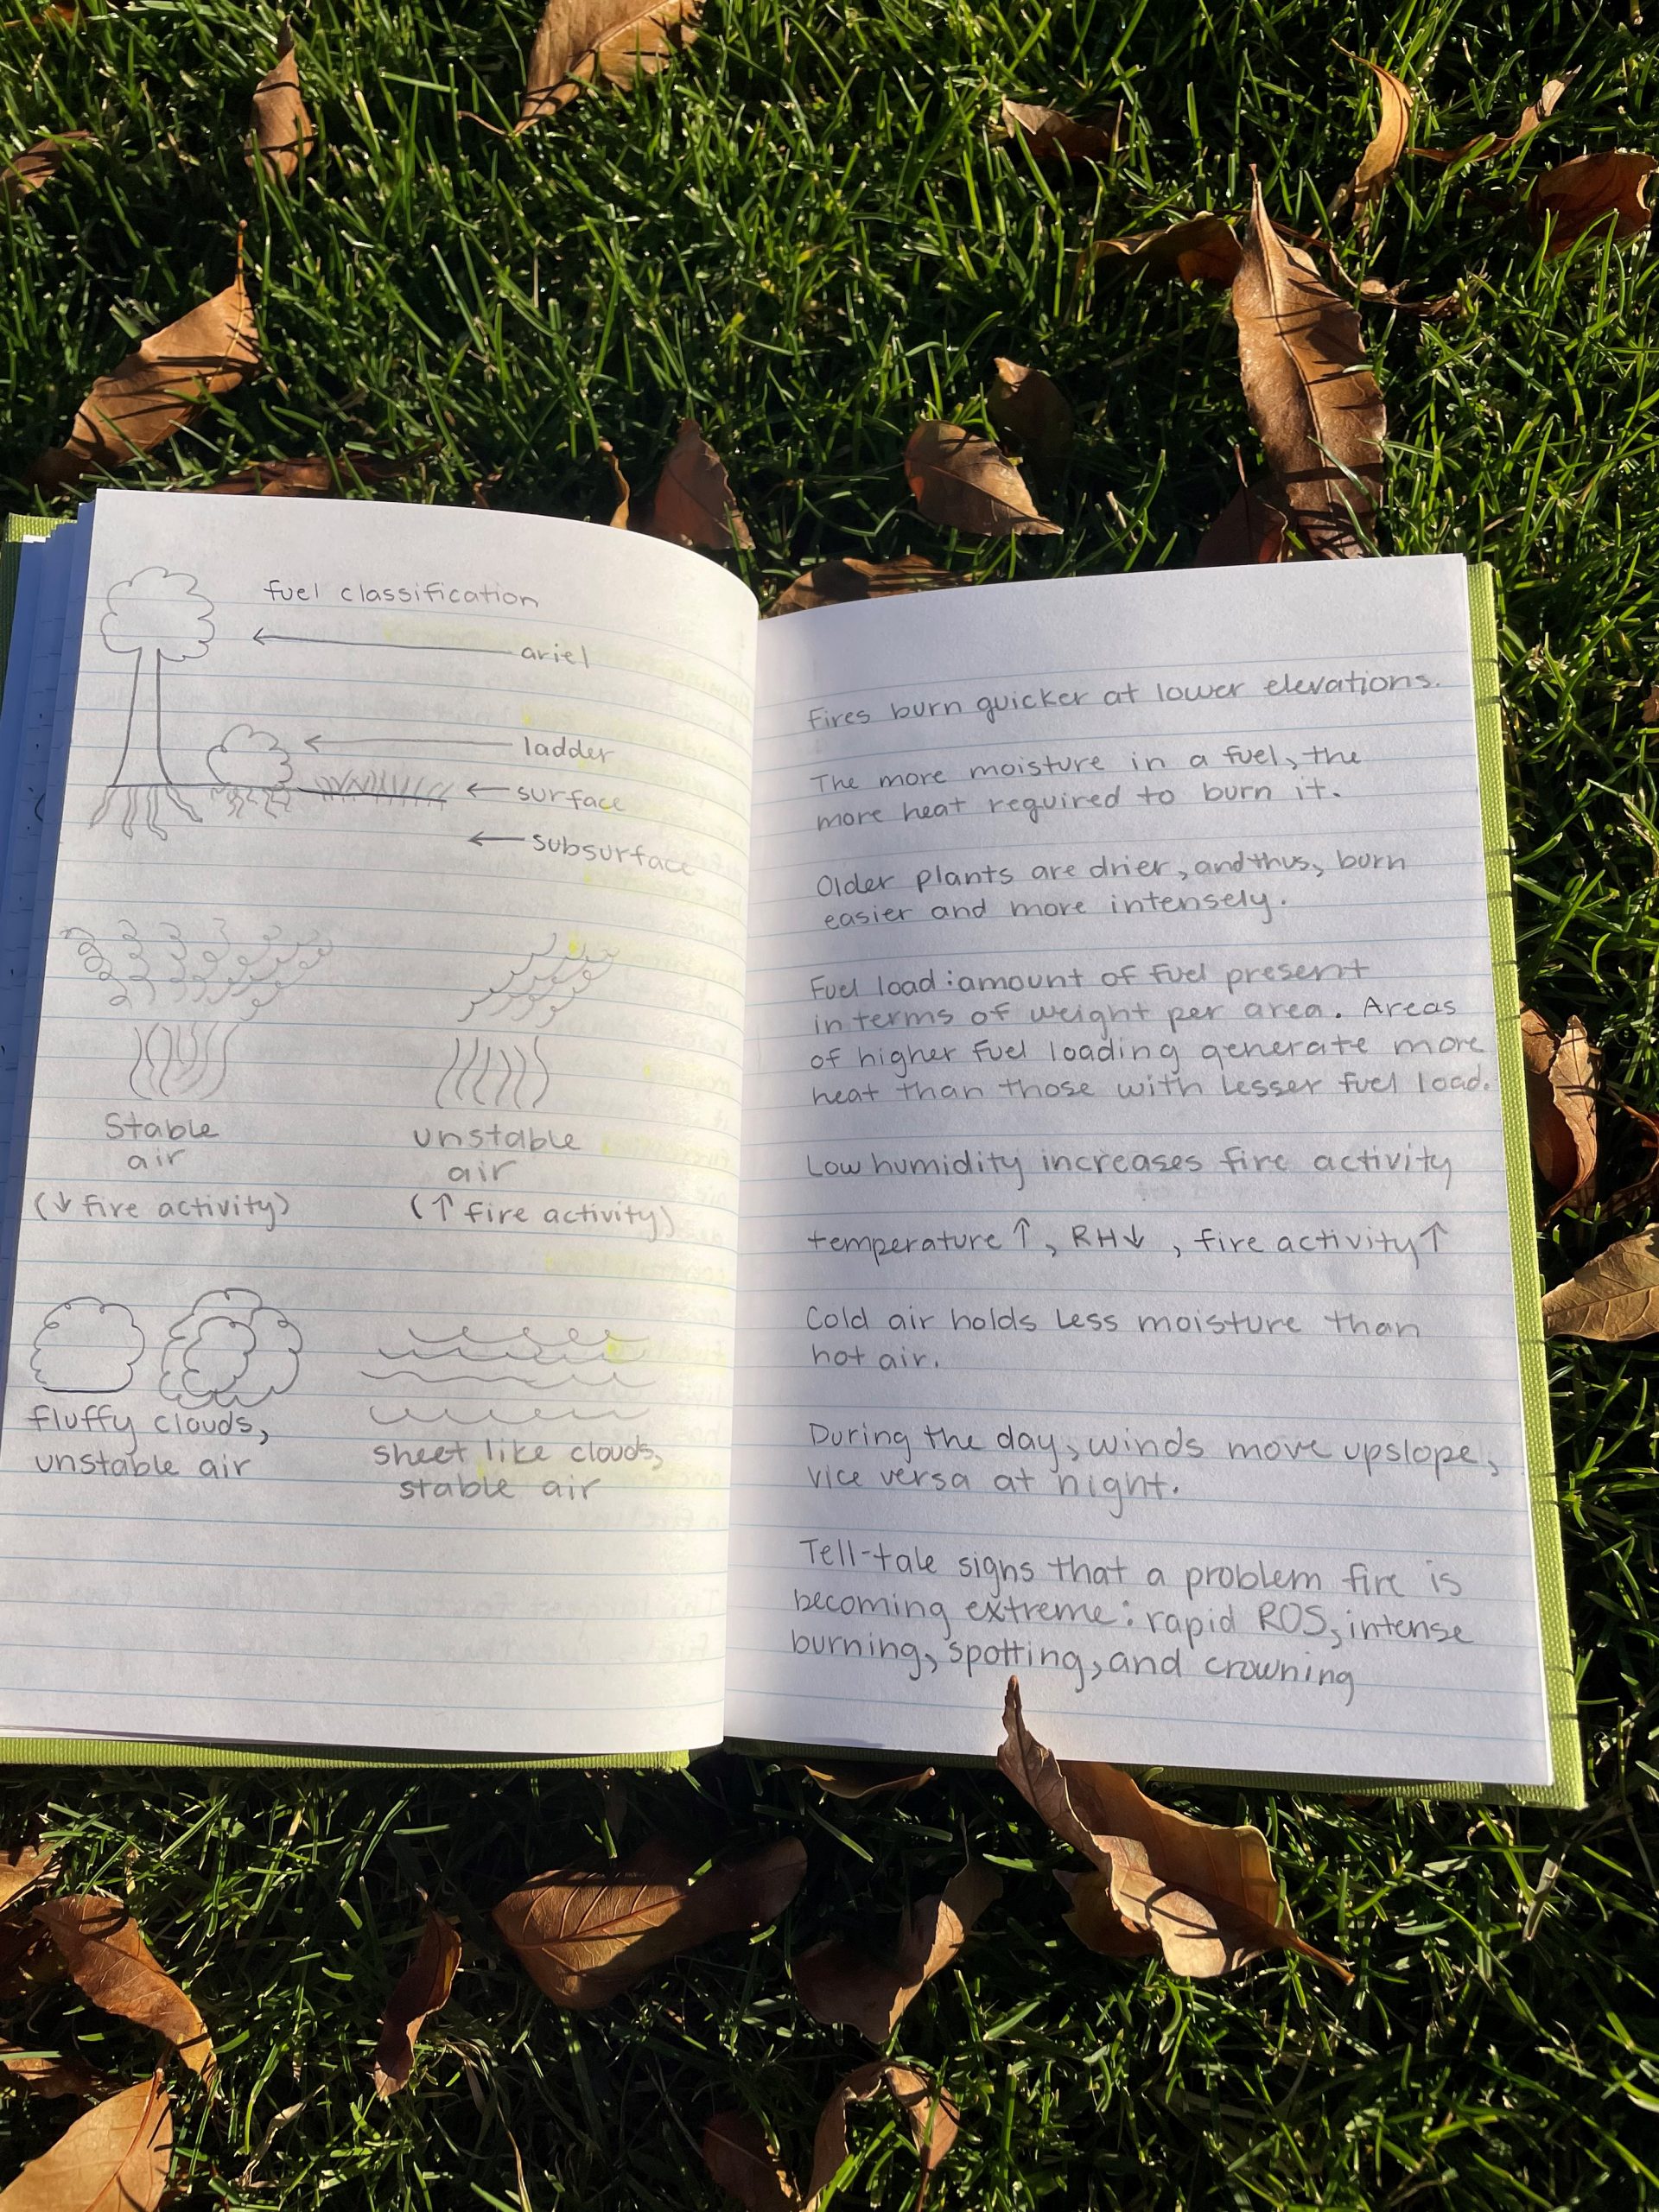 fuel classification
ariel
ladder
surface
subsurface
Stable
air
(↓ fire activity)
unstable
air
(↑ fire activity)
fluffy clouds,
unstable air
sheet like clouds,
stable air
Fires burn quicker at lower elevations.
The more moisture in a fuel, the
more heat required to burn it.
Older plants are drier, and thus, burn
easier and more intensely.
Fuel load: amount of fuel present
in terms of weight per area. Areas
of higher fuel loading generate more
heat than those with lesser fuel load.
Low humidity increases fire activity
temperature ↑, RH ↓, fire activity ↑
Cold air holds less moisture than
hot air.
During the day, winds move upslope,
vice versa at night.
Tell-tale signs that a problem fire is
becoming extreme: rapid ROS, intense
burning, spotting, and crowning